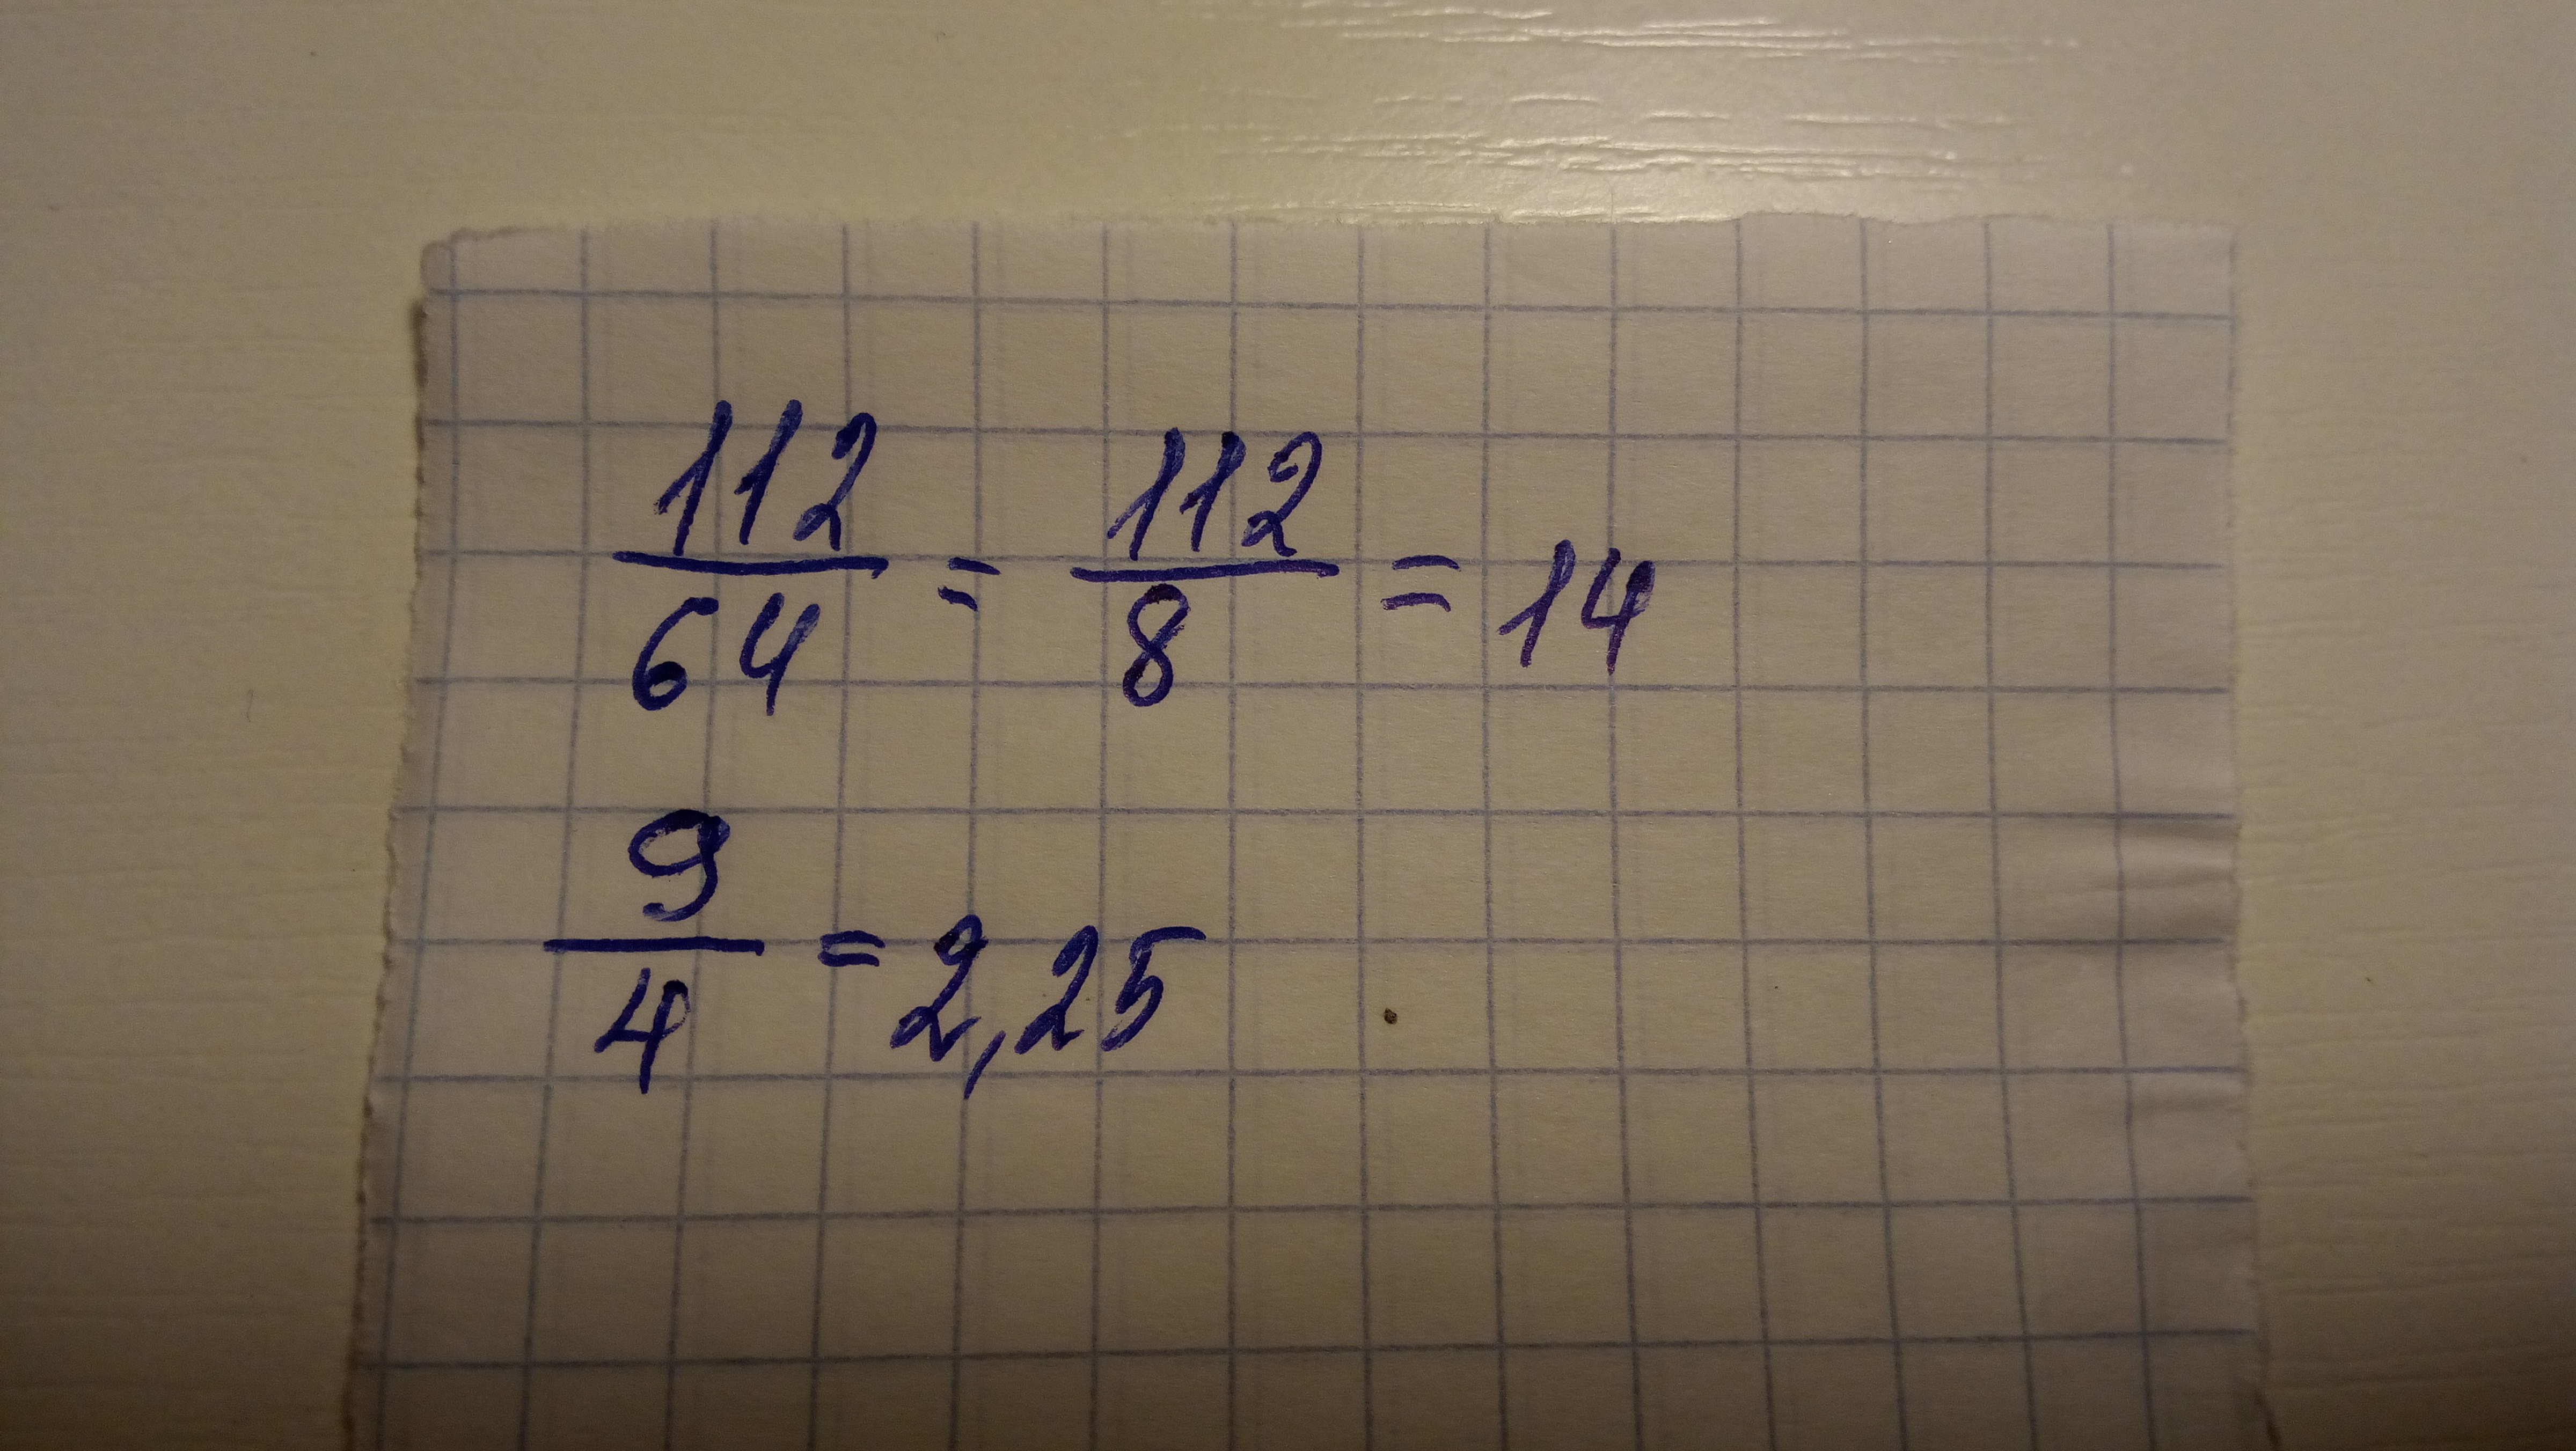 112/64 = 112/8 = 14
9/4 = 2,25